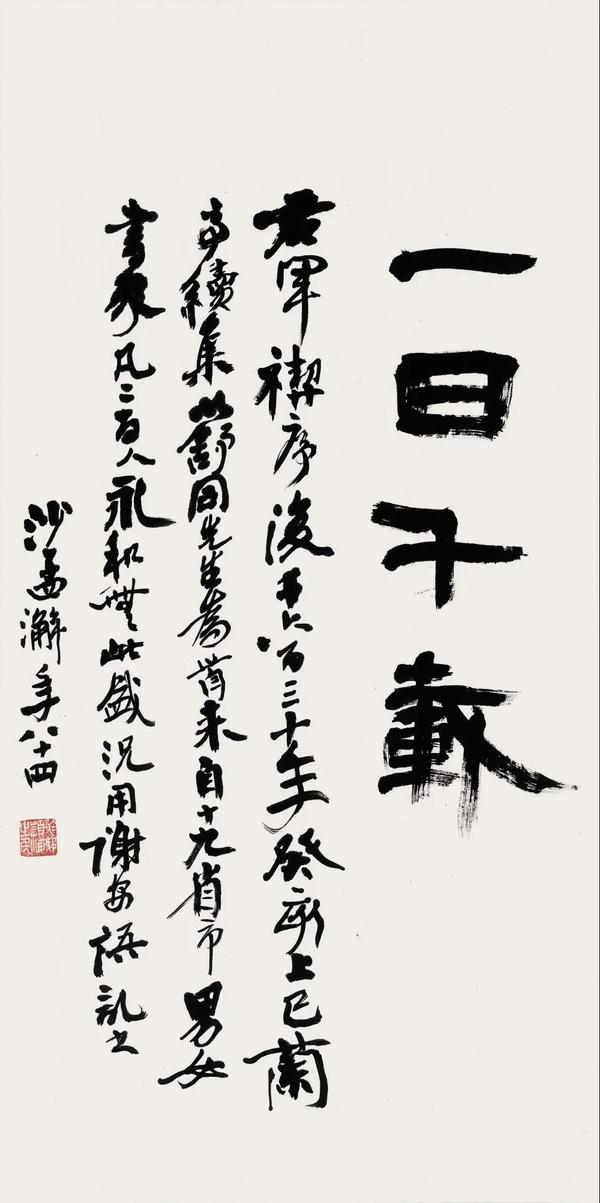 一日千載
右軍禊序後千六百三十年癸亥上巳蘭
亭續集以舒同先生為首来自十九省市男女
書家凡二百人永和無此盛況用謝安語記之
沙孟澥年八十四